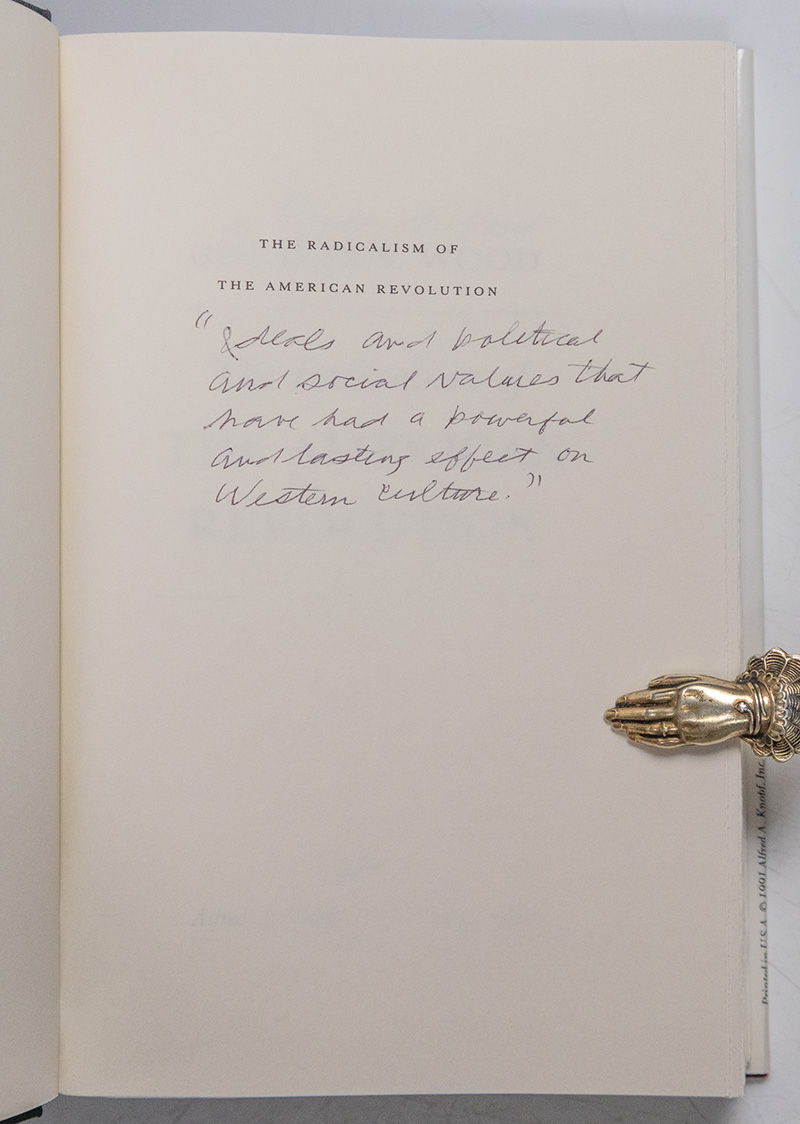 THE RADICALISM OF
THE AMERICAN REVOLUTION
"Ideals and political
and social values that
have had a powerful
and lasting effect on
Western culture."
Printed in U.S.A. © 1991 Alfred A. Knopf, Inc.